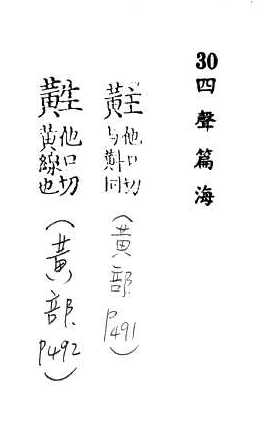 30四聲篇海
黈
他口切
与同
(黃部P491)
他口切
黃線也
(黃部P492)